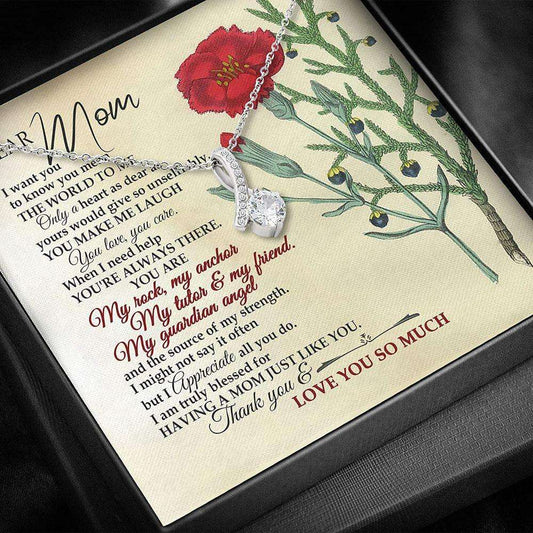 Mom
I want you
to know you
THE WORLD TO
Only a heart as dear
yours would give so unselfishly.
YOU MAKE ME LAUGH
You love, you care.
When I need help
YOU'RE ALWAYS THERE.
YOU ARE
My rock, my anchor
My tutor & my friend.
My guardian angel
and the source of my strength.
I might not say it often
but I Appreciate all you do.
I am truly blessed for
HAVING A MOM JUST LIKE YOU.
Thank you &
LOVE YOU SO MUCH